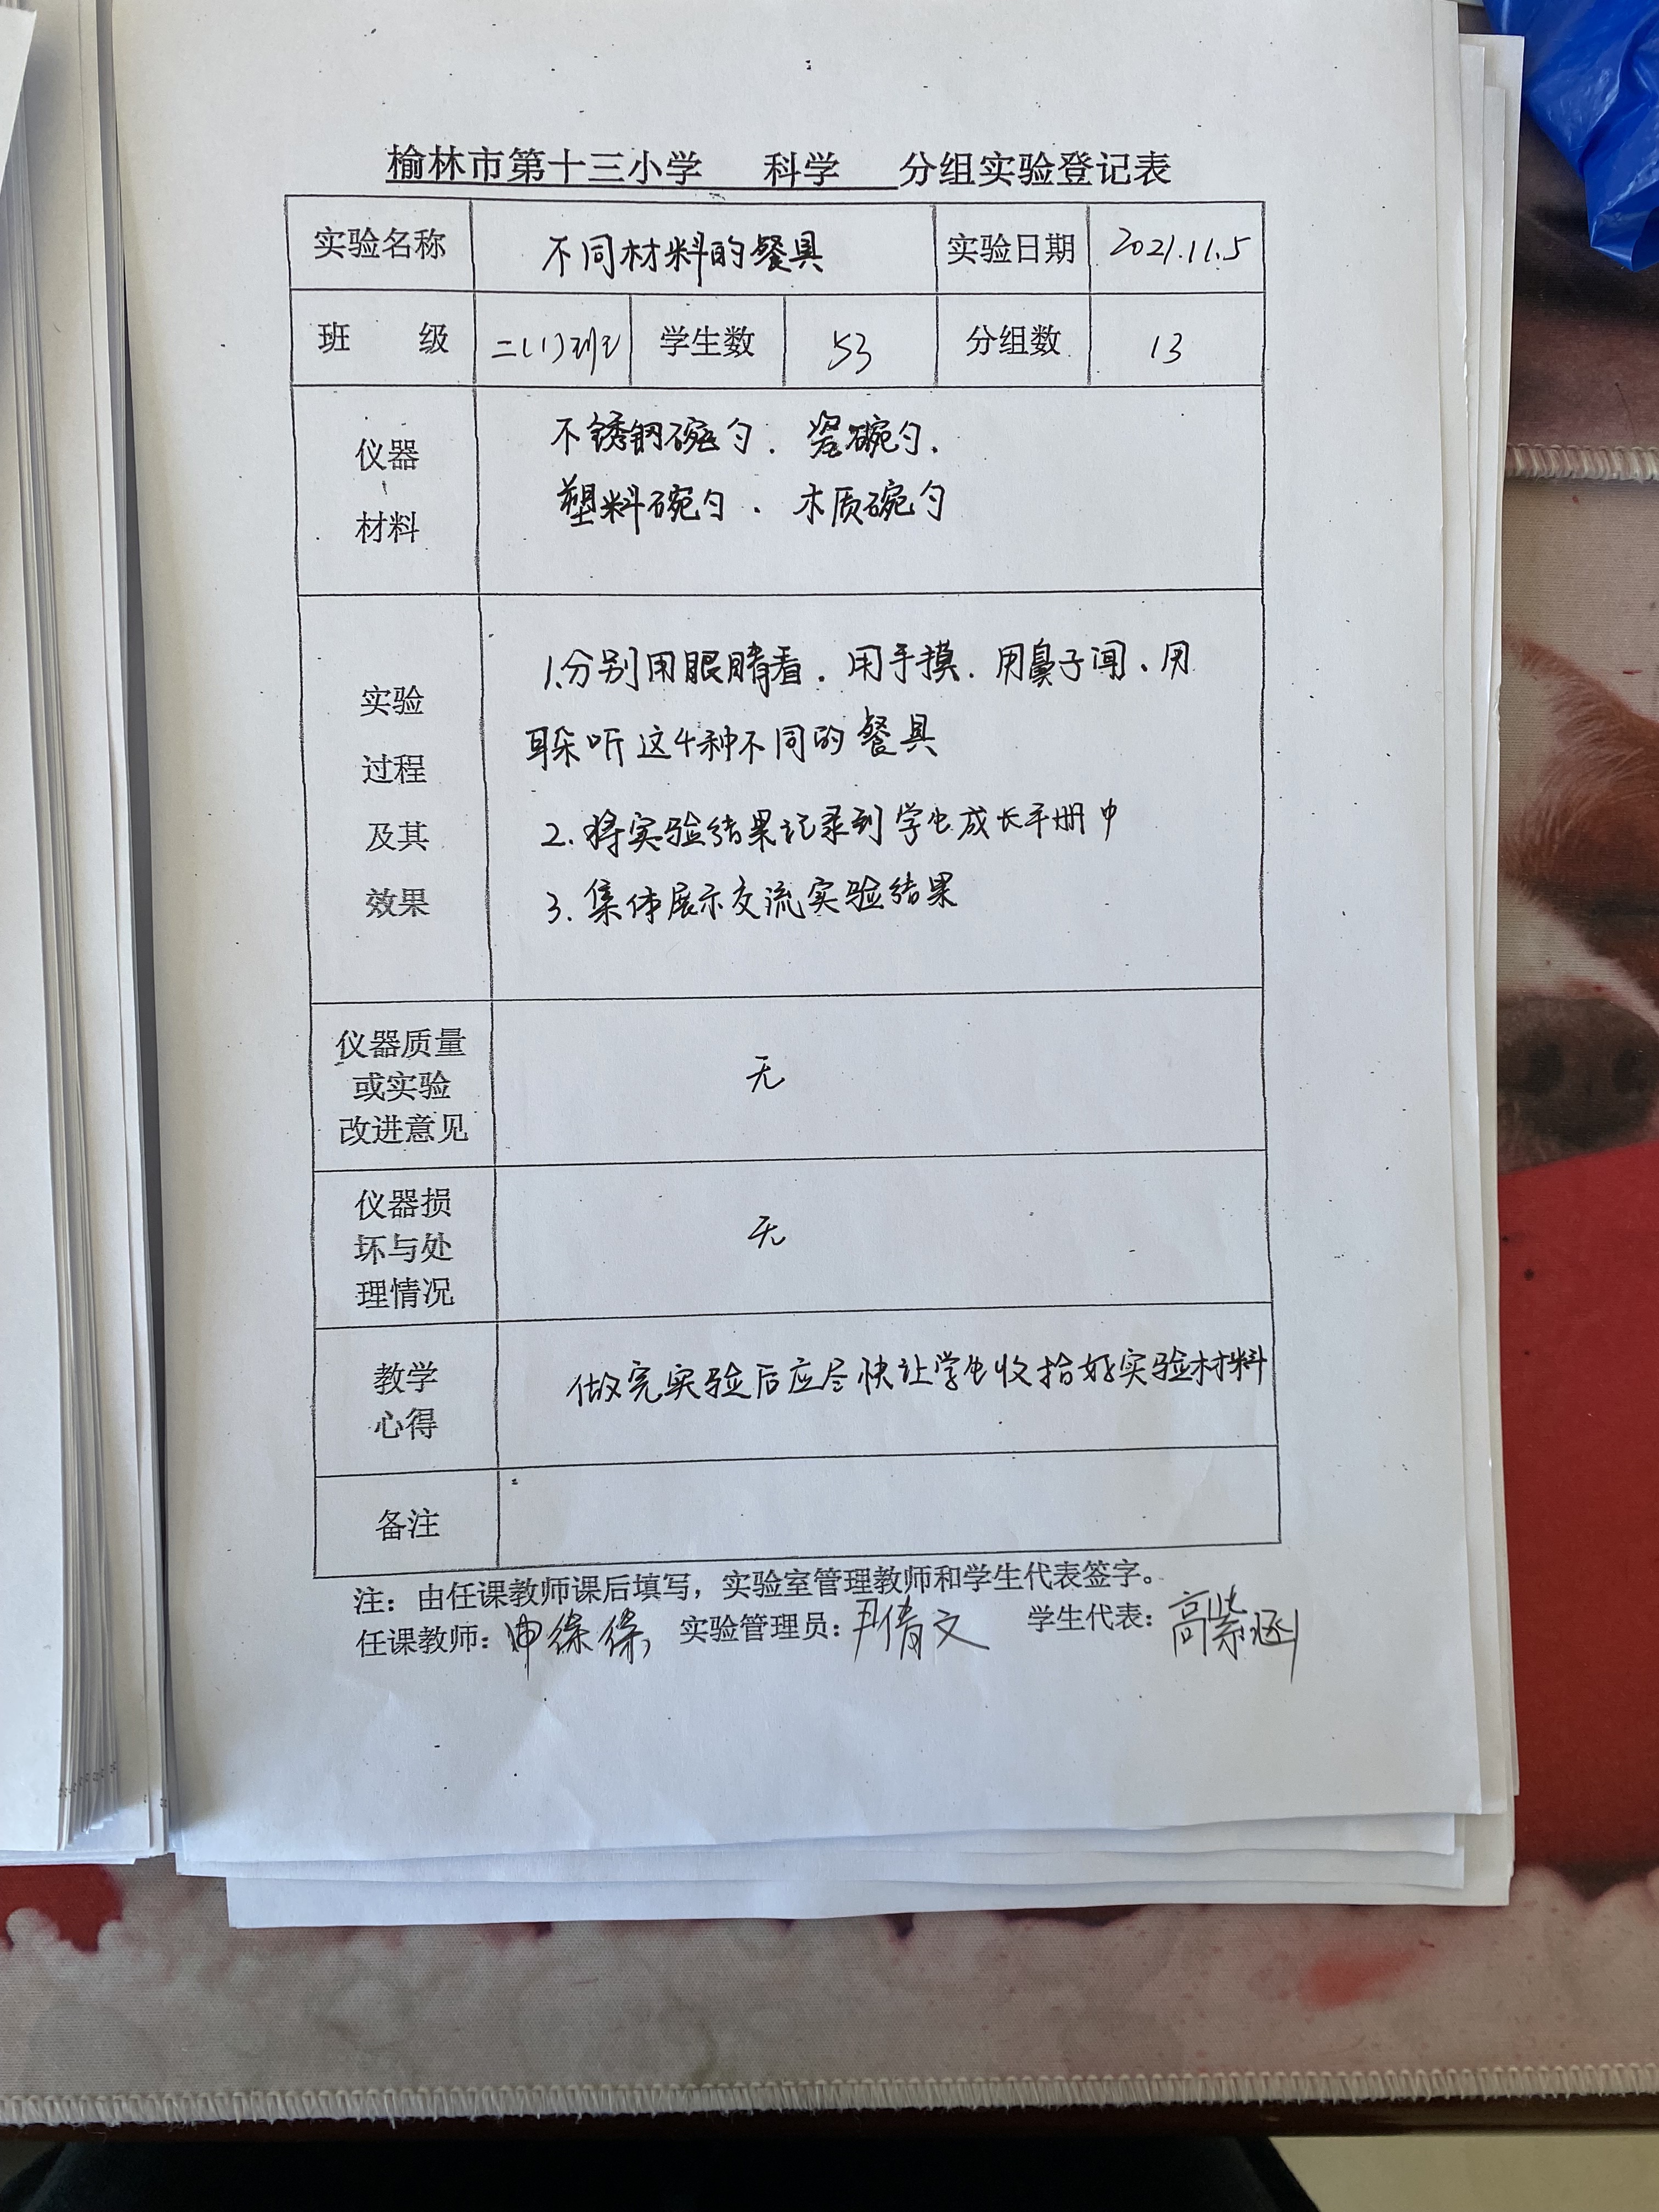 榆林市第十三小学 科学 分组实验登记表
实验名称 不同材料的餐具 实验日期 2021.11.5
班 级 二(1)班 学生数 53 分组数 13
仪器
材料
不锈钢碗勺、瓷碗勺、
塑料碗勺、木质碗勺
实验
过程
及其
效果
1.分别用眼睛看、用手摸、用鼻子闻、用
耳朵听这4种不同的餐具
2.将实验结果记录到学生成长手册中
3.集体展示交流实验结果
仪器质量
或实验
改进意见
无
仪器损
坏与处
理情况
无
教学
心得
做完实验后应尽快让学生收拾好实验材料
备注
注：由任课教师课后填写，实验室管理教师和学生代表签字。
任课教师： 实验管理员：尹倩文 学生代表：高紫涵